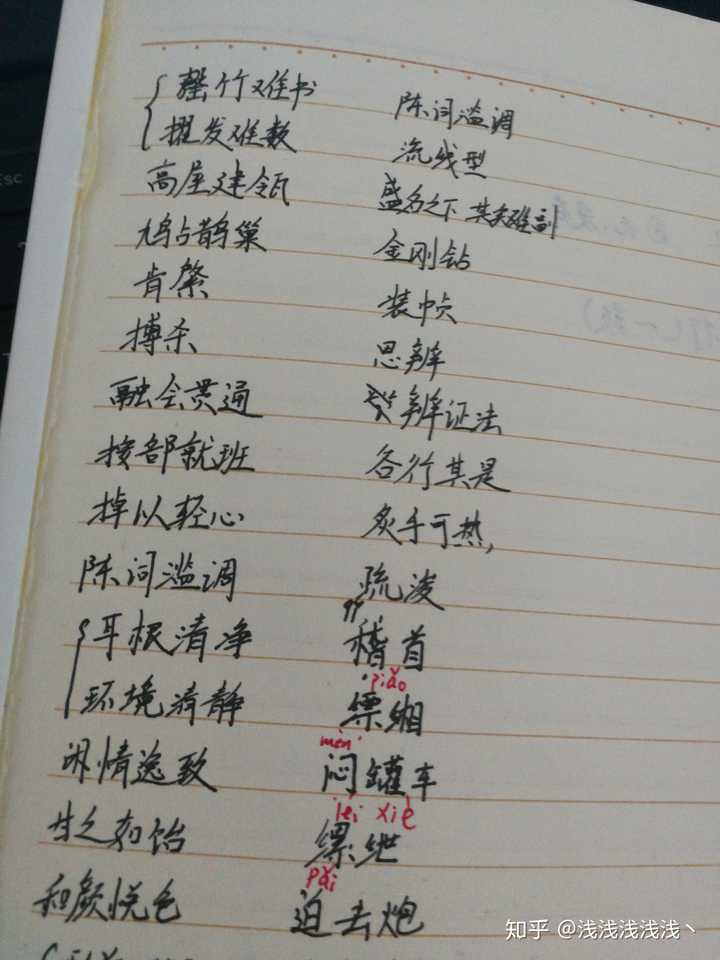 罄竹难书
擢发难数
高屋建瓴
鸠占鹊巢
肯綮
搏杀
融会贯通
按部就班
掉以轻心
陈词滥调
耳根清净
环境清静
闲情逸致
甘之如饴
和颜悦色
陈词滥调
流线型
盛名之下 其实难副
金刚钻
装帧
思辨
辨证法
各行其是
炙手可热,
疏浚
稽首
piǎo
缥缃
mèn
闷罐车
léi xiè
缧绁
pǎi
迫击炮
知乎 @浅浅浅浅浅丶
Esc